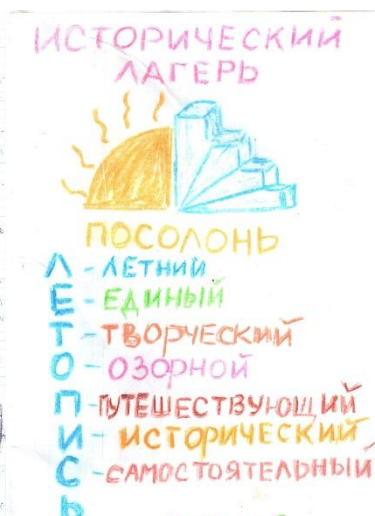 ИСТОРИЧЕСКИЙ
ЛАГЕРЬ
ПОСОЛОНЬ
Л - ЛЕТНИЙ
Е - ЕДИНЫЙ
Т - ТВОРЧЕСКИЙ
О - ОЗОРНОЙ
П - ПУТЕШЕСТВУЮЩИЙ
И - ИСТОРИЧЕСКИЙ
С - САМОСТОЯТЕЛЬНЫЙ
Ь